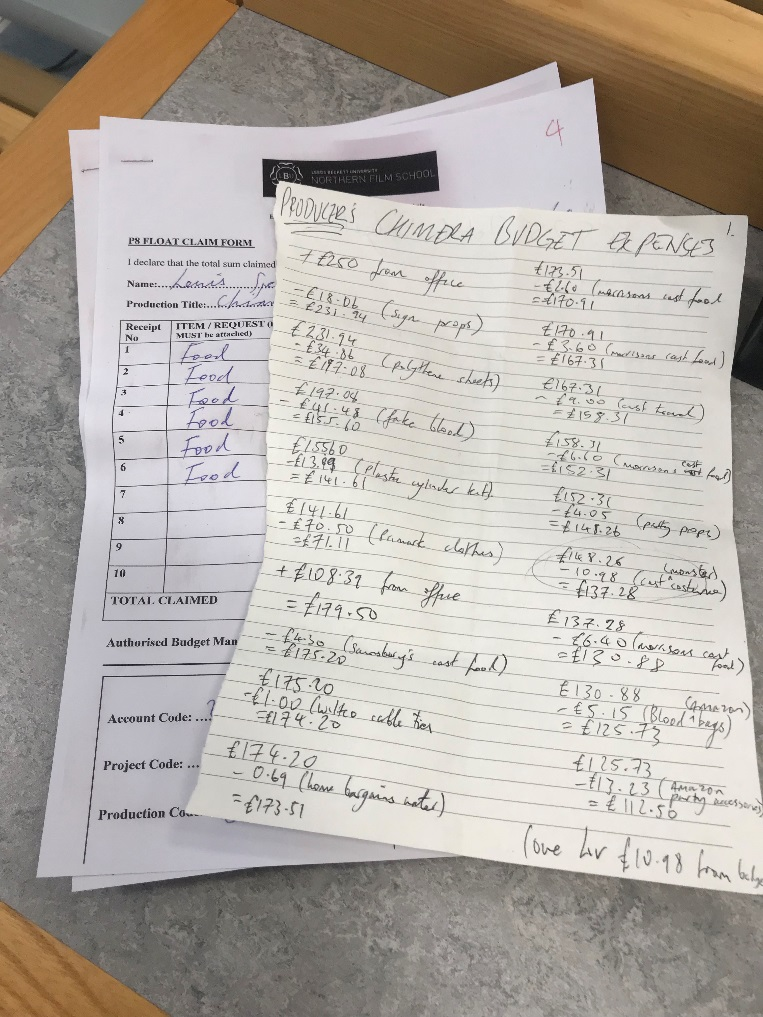 4
LEEDS BECKETT UNIVERSITY
NORTHERN FILM SCHOOL
P8 FLOAT CLAIM FORM
I declare that the total sum claimed
Name:... Louis
Production Title:...
Receipt No
ITEM / REQUEST
MUST be attached)
1 Food
2 Food
3 Food
4 Food
5 Food
6 Food
7
8
9
10
TOTAL CLAIMED
Authorised Budget Man
Account Code: ...
Project Code: ...
Production Co
1.
PRODUCER'S CHIMERA BUDGET EXPENSES
+ £250 from office
- £18.06 (sign props)
= £231.94
£231.94
- £34.86 (polythene sheets)
= £197.08
£197.08
- £41.48 (fake blood)
= £155.60
£15560
- £13.99 (plastic cylinder
= £141.61
£141.61
- £70.50 (Primark clothes)
= £71.11
+ £108.39 from office
= £179.50
- £4.30 (Sainsbury's cast food)
= £175.20
£175.20
- £1.00 (wilko cable ties
= £174.20
£174.20
- 0.69 (home bargains water)
= £173.51
£173.51
- £2.60 (morrisons cast food
= £170.91
£170.91
- £3.60 (morrisons cast food)
= £167.31
£167.31
- £9.00 (cast travel)
= £158.31
£158.31
- £6.60 (morrisons cast food)
= £152.31
£152.31
- £4.05 (party props)
= £148.26
£148.26 (monster)
- 10.98 (cast costume)
= £137.28
£137.28
- £6.40 (morrisons cast food)
= £130.88
£130.88 (Amazon)
- £5.15 (Blood bags)
= £125.73
£125.73
- £13.23 (Amazon party accessories)
= £112.50
£10.98 from